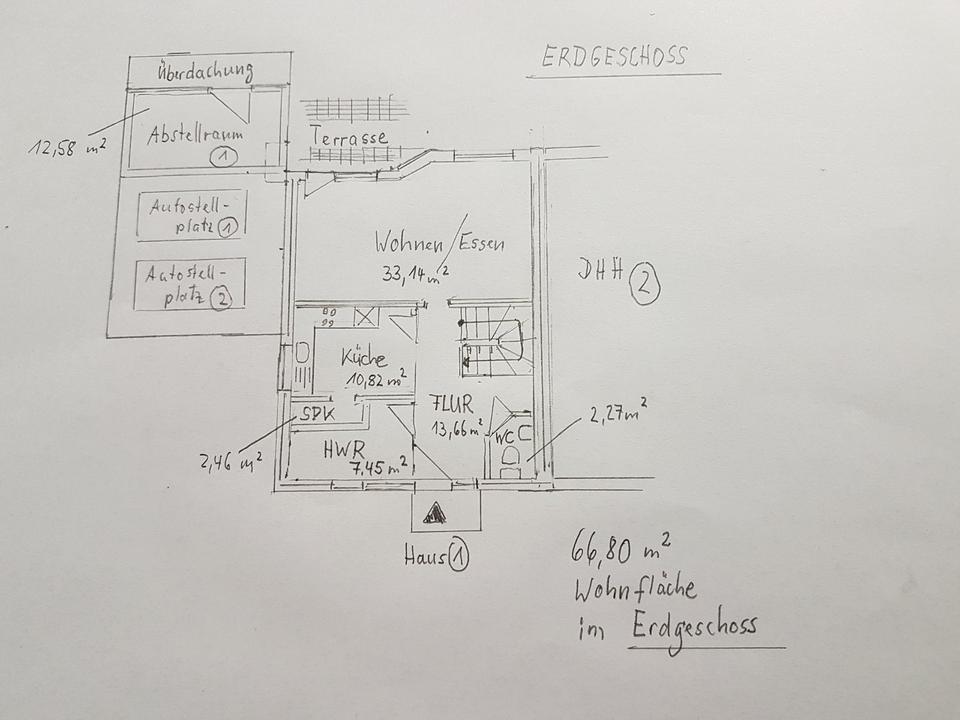 ERDGESCHOSS
Überdachung
12,58 m²
Abstellraum
1
Terrasse
Autostell-
platz 1
Autostell-
platz 2
Wohnen/Essen
33,14 m²
DHH 2
Küche
10,82 m²
SPK
2,46 m²
FLUR
13,66 m²
WC
2,27 m²
HWR
7,45 m²
Haus 1
66,80 m²
Wohnfläche
im Erdgeschoss